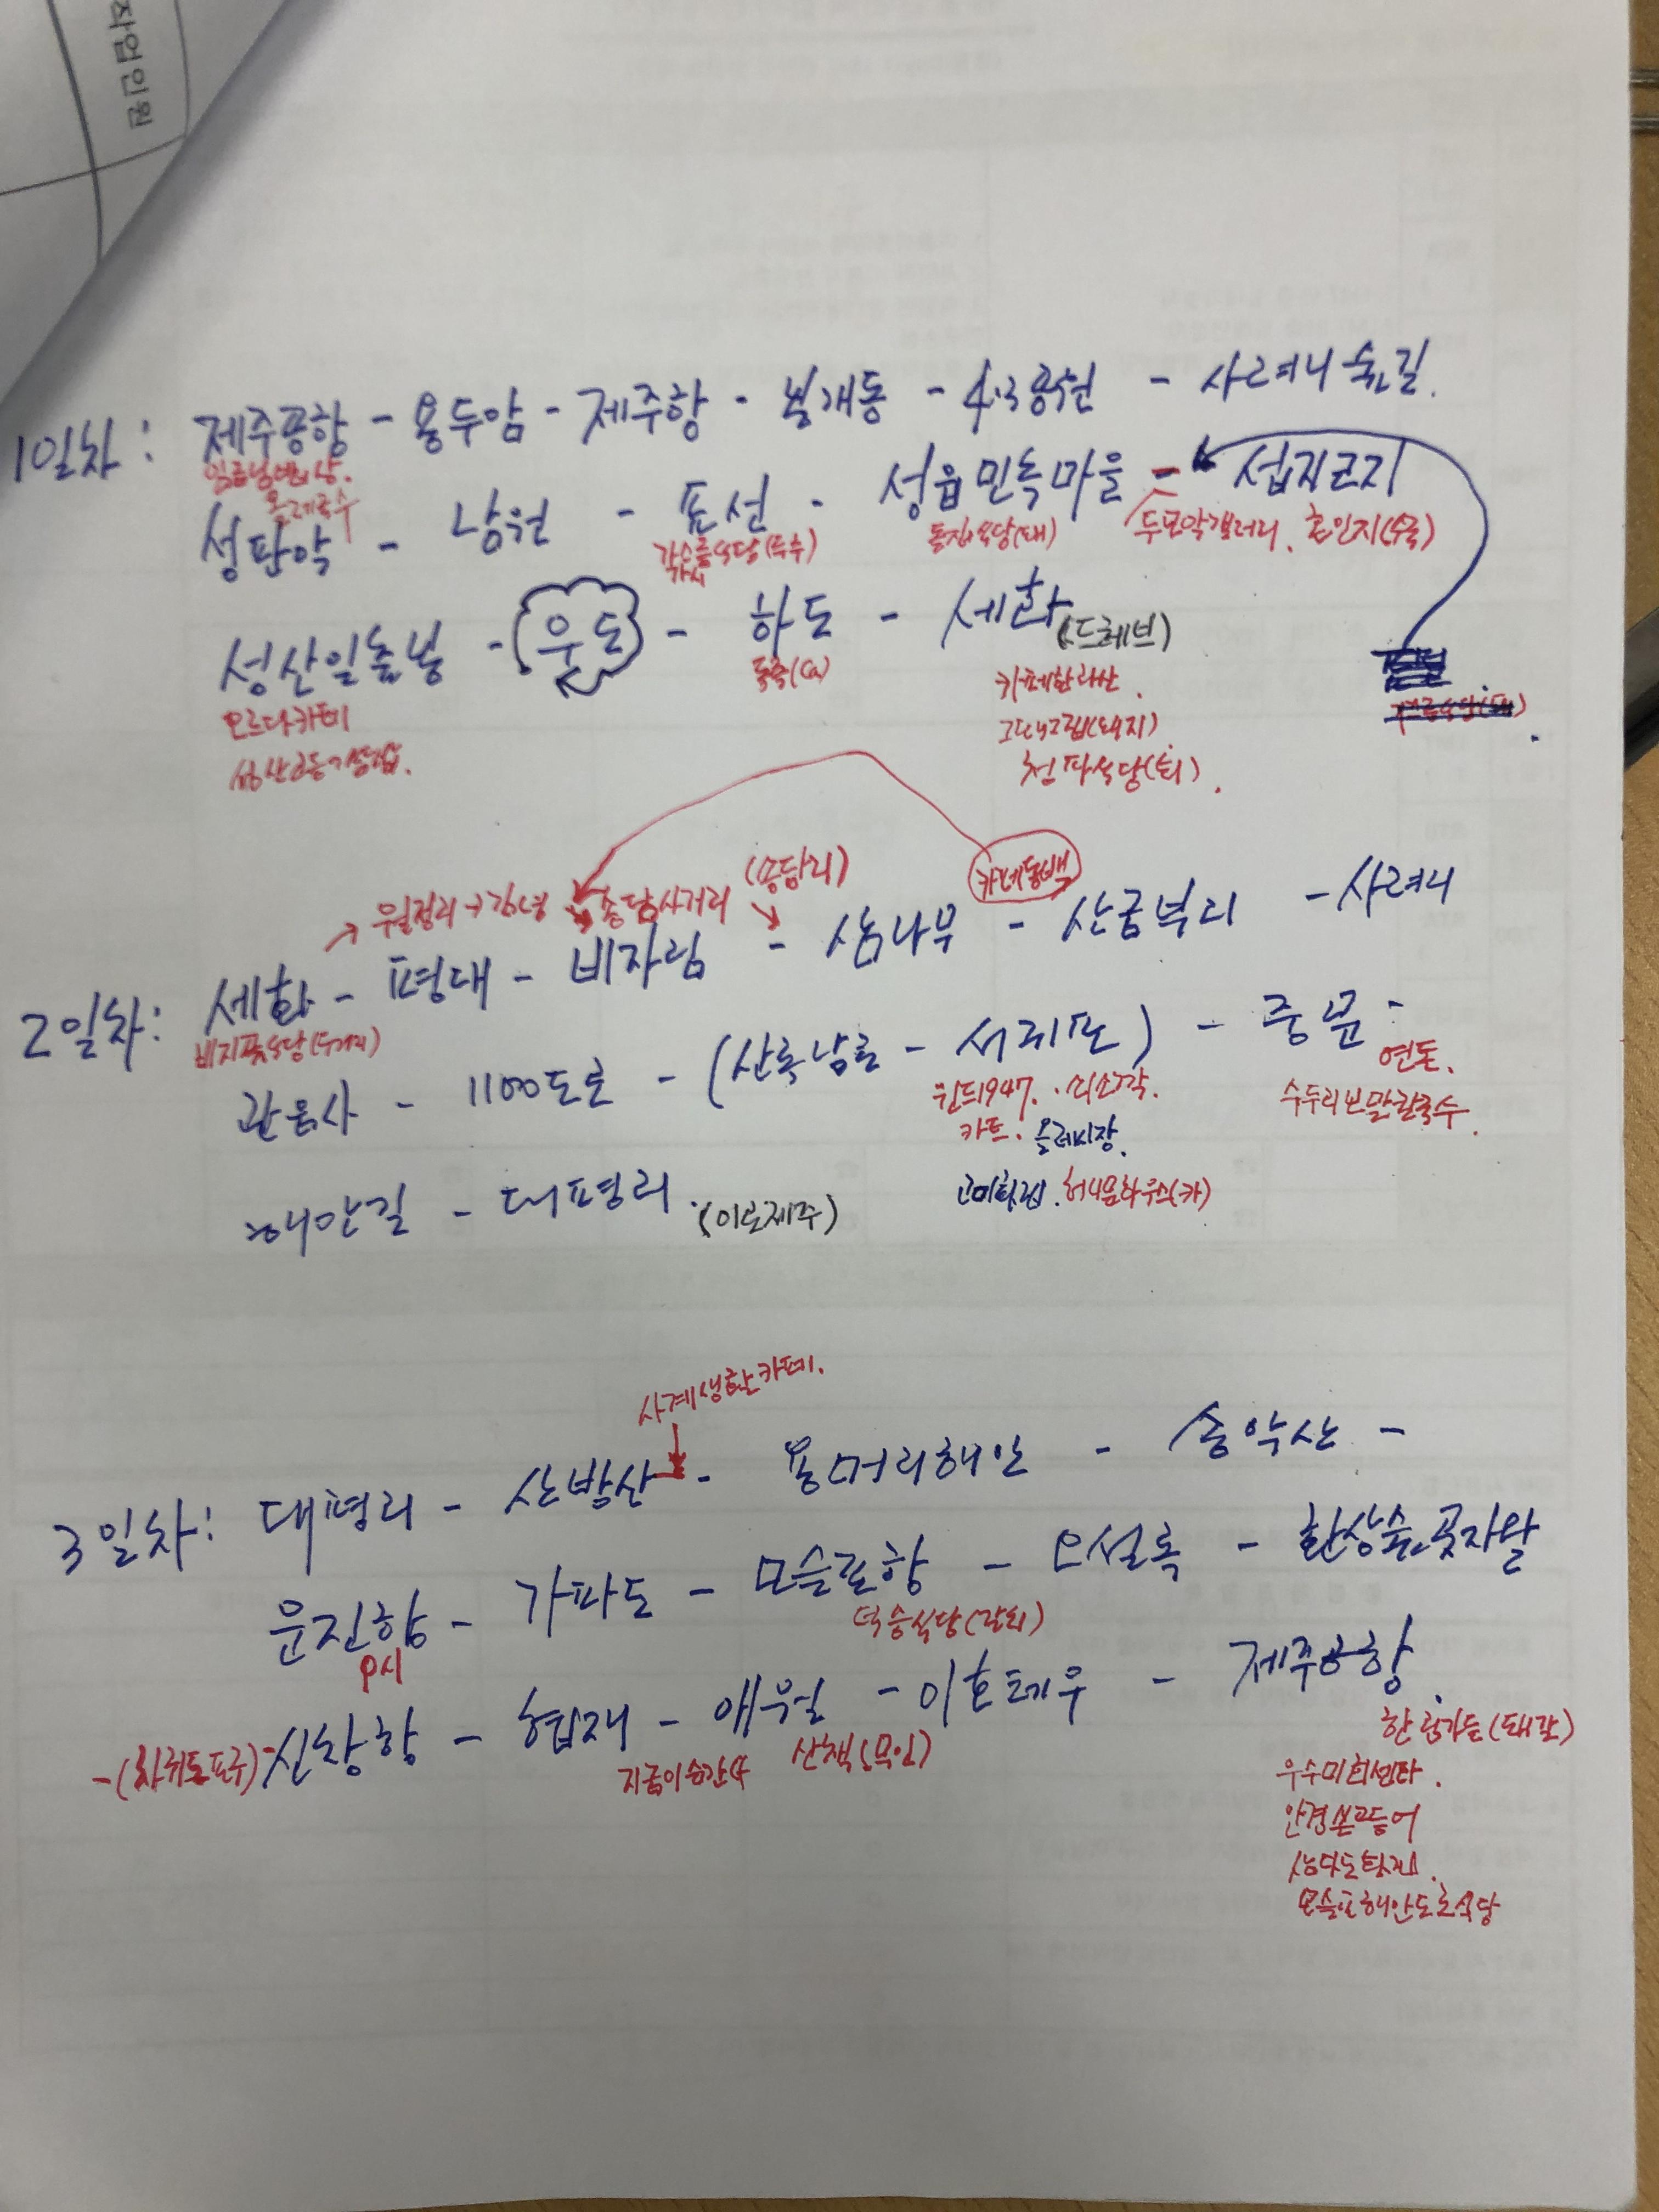 작업인원
1일차: 제주공항 - 용두암 - 제주항 - 봉개동 - 4.3공원 - 사려니숲길.
임금님밥상.
올레국수
성판악 - 남원 - 표선 - 성읍민속마을 - 섭지코지
가시 식당(두루) 돌집식당(돼) 두모악갤러리. 혼인지(수국)
성산일출봉 - 우도 - 하도 - 세화 (드레브)
오르다카페 카페한라산.
그리고그집(돼지)
청파식당(회).
카페동백
(송당리)
→ 월정리 → 김녕 송당사거리
2일차: 세화 - 평대 - 비자림 - 삼나무 - 산굼부리 - 사려니
관음사 - 1100도로 - (산록남로 - 서귀포) - 중문 -
윈드1947. 쇠소깍. 연돈.
카트. 올레시장. 수두리보말칼국수.
허니문하우스(카)
해안길 - 대평리. (이로제주)
사계생활카페.
3일차: 대평리 - 산방산 - 용머리해안 - 송악산 -
운진항 - 가파도 - 모슬포항 - 오설록 - 환상숲곶자왈
9시 덕승식당(갈치)
-(차귀도포구)- 신창항 - 협재 - 애월 - 이호테우 - 제주공항.
지금이순간 산책(무인) 한림가든(돼갈)
우수미회센타.
안경쓴고등어
모슬포해안도로식당